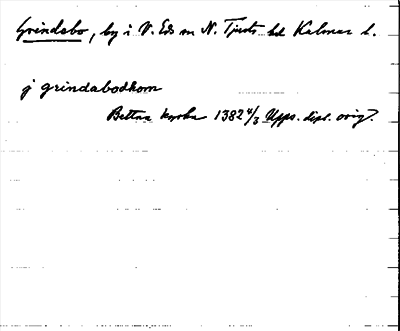 Grindsbo, by i V. Eds sn N. Tjusts hd Kalmar l.
j grindabodhom
Bettna kyrka 1382 4/3 Upps. dipl. orig.